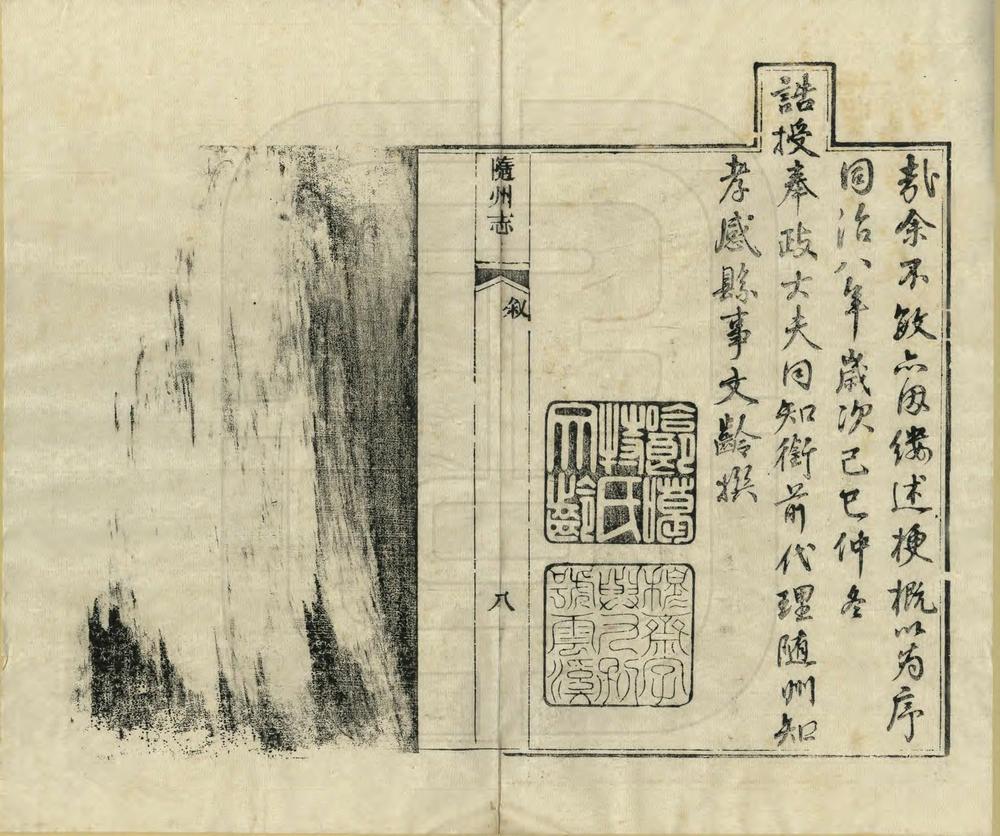 哉余不敏亦因縷述梗概以为序
同治八年歲次己巳仲冬
誥授奉政大夫同知銜前代理随州知
孝感縣事文齡撰
隨州志
叙
八